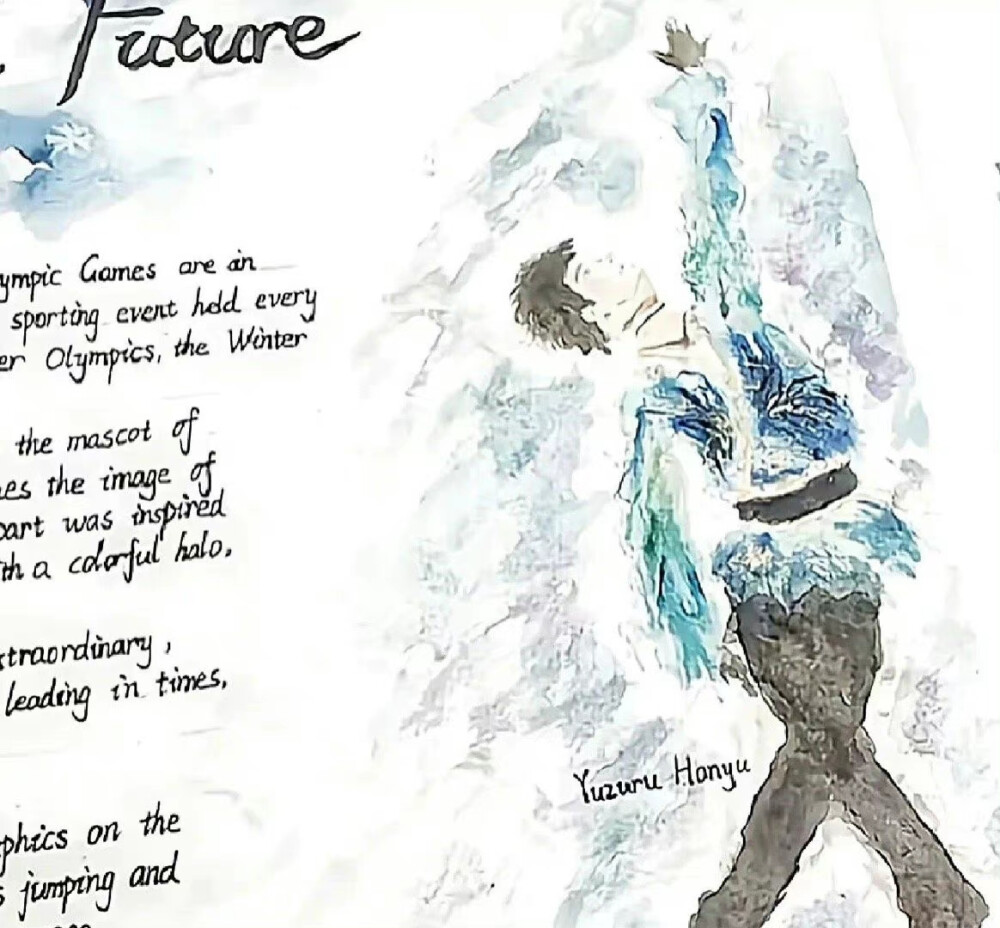 Future
ympic Games are an
sporting event held every
er Olympics, the Winter
the mascot of
es the image of
part was inspired
th a colorful halo.
xtraordinary,
leading in times.
phics on the
s jumping and
Yuzuru Hanyu